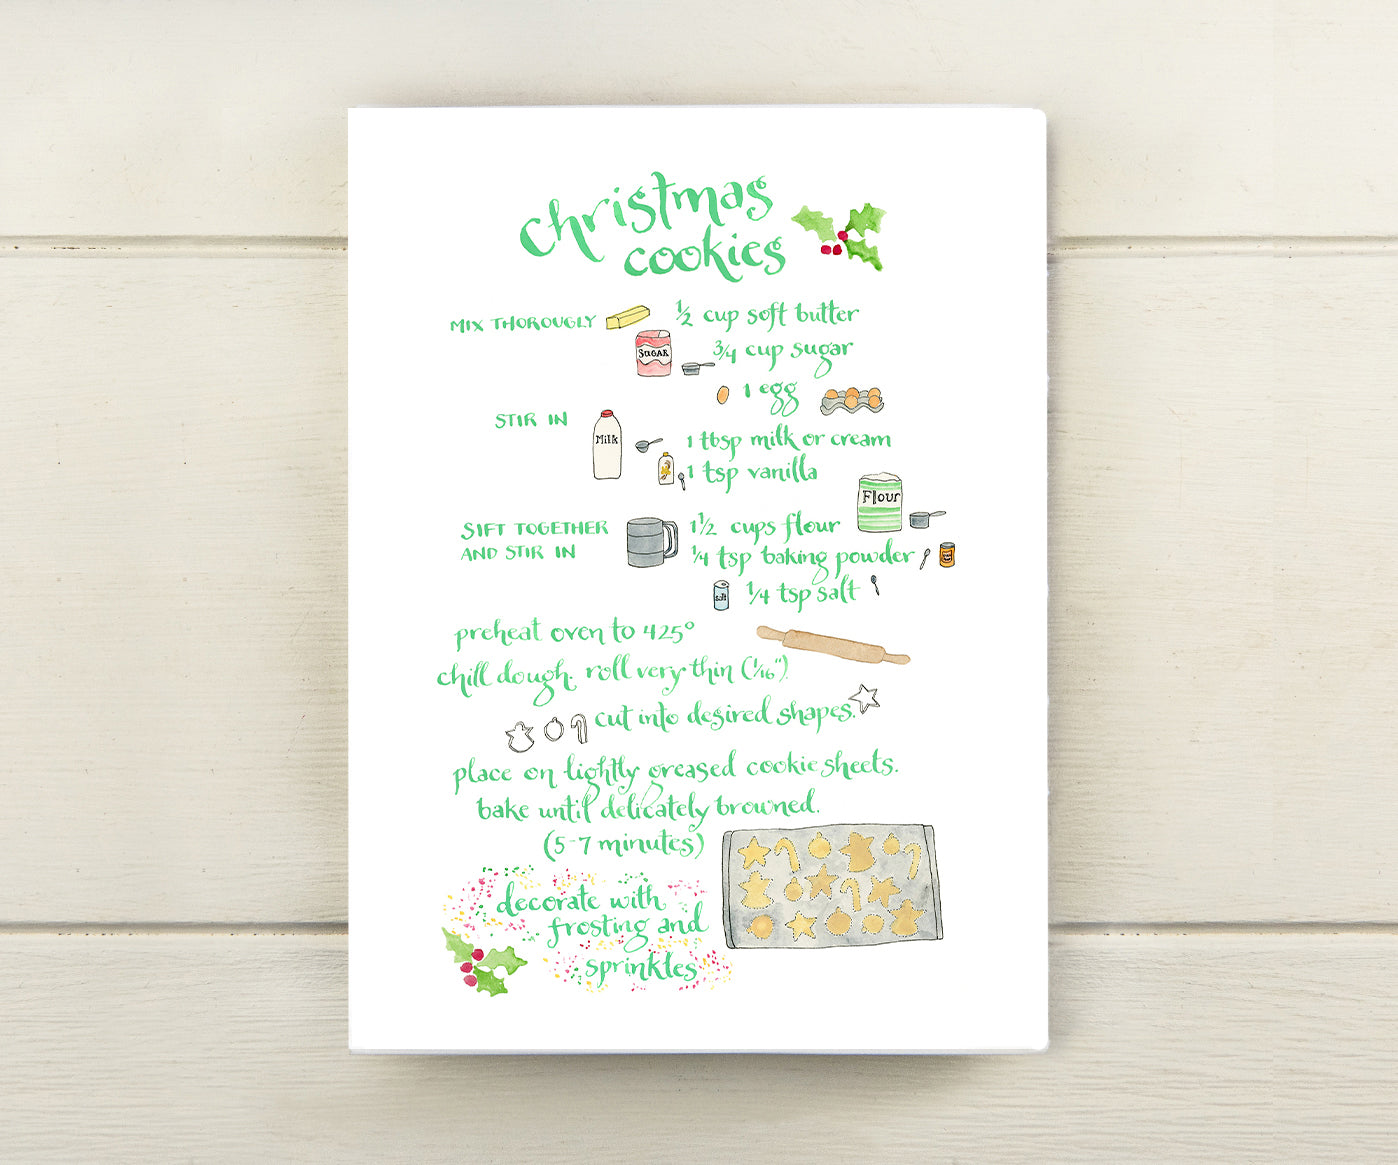 christmas
cookies
MIX THOROUGLY
½ cup soft butter
SUGAR
¾ cup sugar
1 egg
STIR IN
Milk
1 tbsp milk or cream
1 tsp vanilla
Flour
SIFT TOGETHER
AND STIR IN
1½ cups flour
¼ tsp baking powder
salt
¼ tsp salt
preheat oven to 425°
chill dough. roll very thin (1/16")
cut into desired shapes.
place on lightly greased cookie sheets.
bake until delicately browned.
(5-7 minutes)
decorate with
frosting and
sprinkles